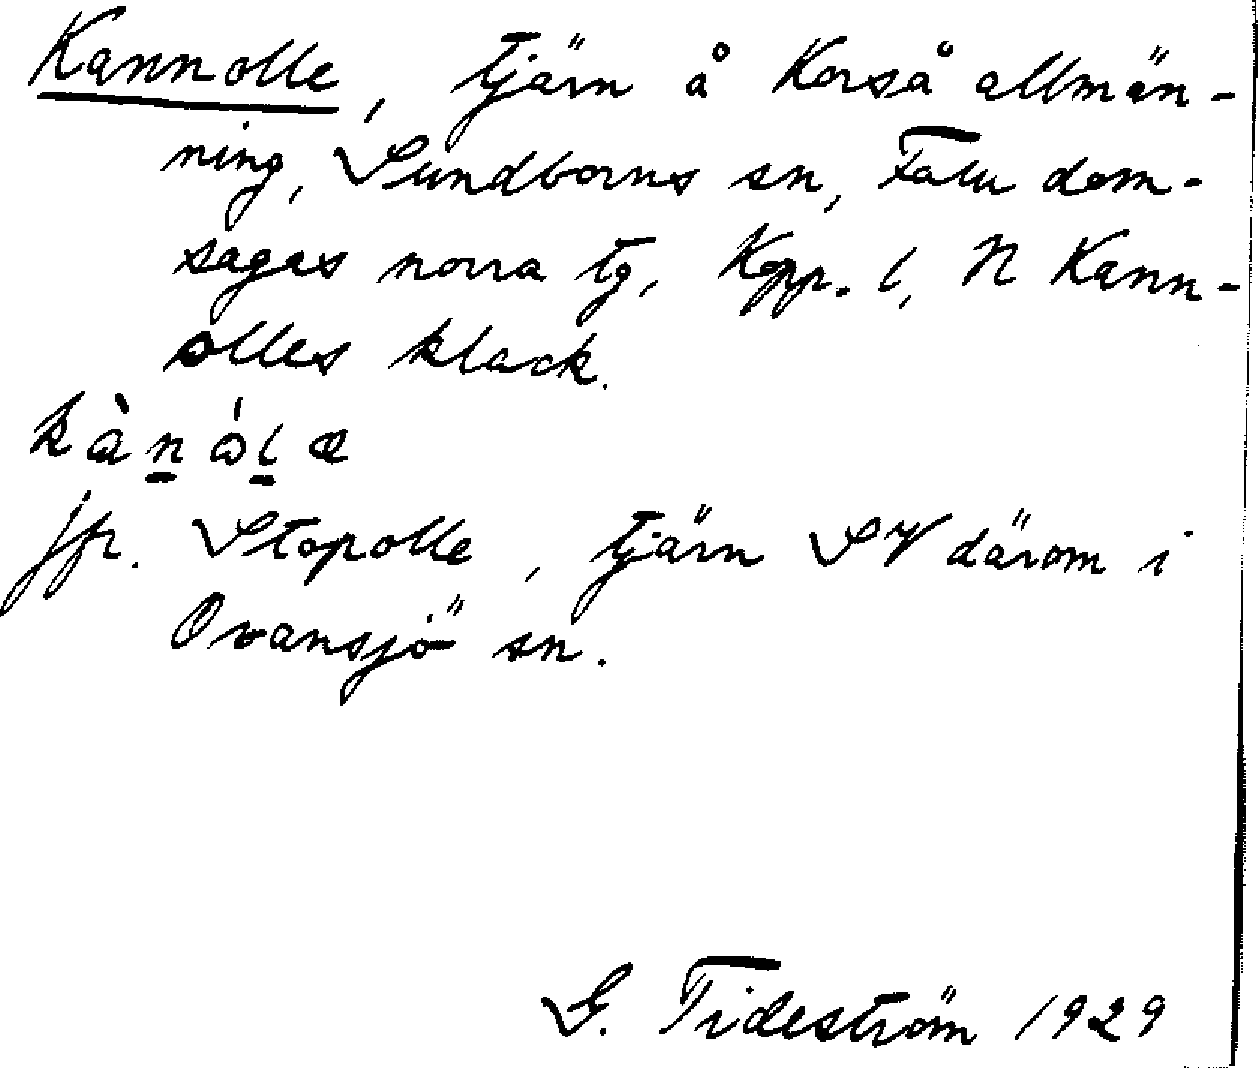 Kannolle, tjärn å Korså allmän-
ning, Sundborns sn, Falu dom-
sagas norra tg, Kopp. l, N Kann-
olles klack.
kànóle
jfr. Stopolle, tjärn SV därom i
Ovansjö sn.
G. Tideström 1929